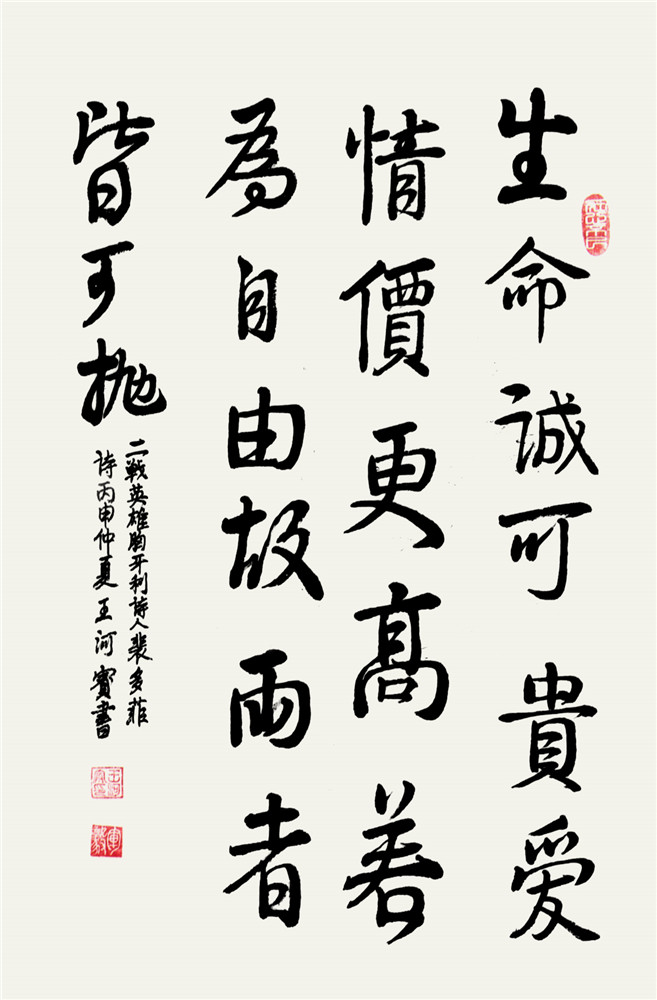 生命誠可貴愛
情價更高若
為自由故两者
皆可抛
二戰英雄胸牙利诗人裴多菲
诗丙申仲夏王河寳書